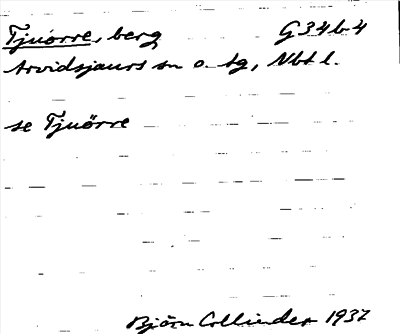 Tjuorre, berg G34b4
Arvidsjaurs sn o. tg, Nbt l.
se Tjuörre
Björn Collinder 1937